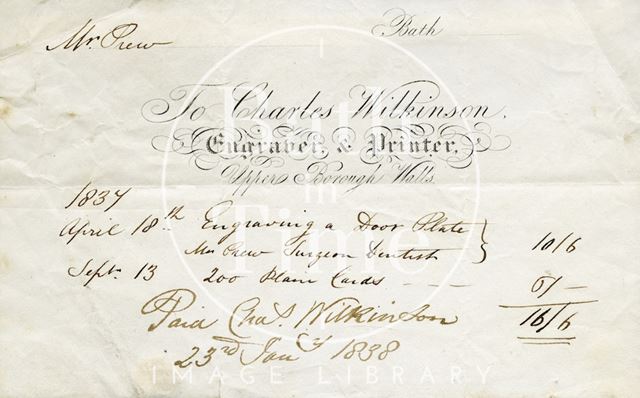 Bath
Mr. Prew
To Charles Wilkinson,
Engraver, & Printer,
Upper Borough Walls.
1837
April 18th Engraving a Door Plate 
Mr Prew Surgeon Dentist } 10/6
Sept. 13 200 Plain Cards - - - 6/-
16/6
Paid Chas. Wilkinson
23rd Jany 1838
Bath in Time
IMAGE LIBRARY